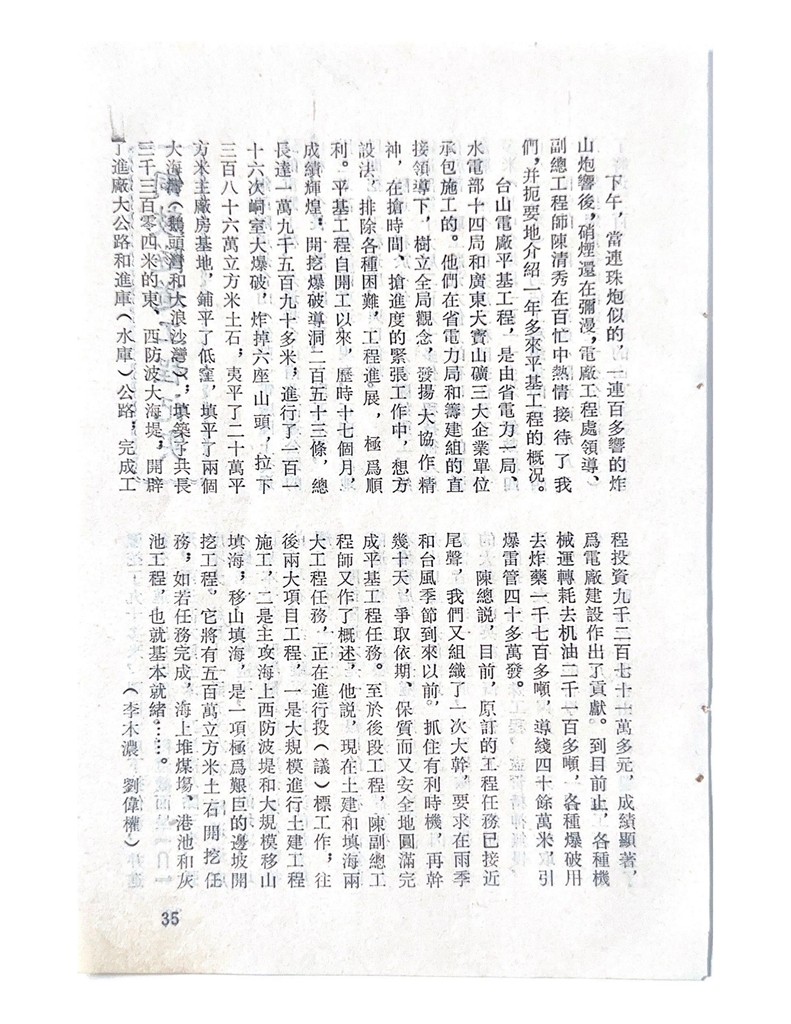 下午，當連珠炮似的，一連百多響的炸
山炮響後，硝煙還在彌漫，電廠工程處領導、
副總工程師陳清秀在百忙中熱情接待了我
們，并扼要地介紹一年多來平基工程的概況。
台山電廠平基工程，是由省電力一局、
水電部十四局和廣東大寶山礦三大企業單位
承包施工的。他們在省電力局和籌建組的直
接領導下，樹立全局觀念，發揚大協作精
神，在搶時間、搶進度的緊張工作中，想方
設法，排除各種困難，工程進展，極爲順
利。平基工程自開工以來，歷時十七個月，
成績輝煌：開挖爆破導洞二百五十三條，總
長達一萬九千五百九十多米，進行了一百一
十六次峒室大爆破，炸掉六座山頭，拉下
三百八十六萬立方米土石，夷平了二十萬平
方米主廠房基地，鋪平了低窪，填平了兩個
大海灣（鵝頭灣和大浪沙灣），填築了共長
三千三百零四米的東、西防波大海堤，開辟
了進廠大公路和進庫（水庫）公路，完成工
程投資九千二百七十一萬多元，成績顯著，
爲電廠建設作出了貢獻。到目前止，各種機
械運轉耗去机油二千一百多噸，各種爆破用
去炸藥一千七百多噸，導綫四十餘萬米，引
爆雷管四十多萬發。
陳總説，目前，原訂的工程任務已接近
尾聲，我們又組織了一次大幹，要求在雨季
和台風季節到來以前，抓住有利時機，再幹
幾十天，爭取依期、保質而又安全地圓滿完
成平基工程任務。至於後段工程，陳副總工
程師又作了概述，他説，現在土建和填海兩
大工程任務，正在進行投（議）標工作，往
後兩大項目工程，一是大規模進行土建工程
施工，二是主攻海上西防波堤和大規模移山
填海，移山填海，是一項極爲艱巨的邊坡開
挖工程。它將有五百萬立方米土石開挖任
務，如若任務完成，海上堆煤場、港池和灰
池工程，也就基本就緒……。
（李木濃 劉偉權）
35